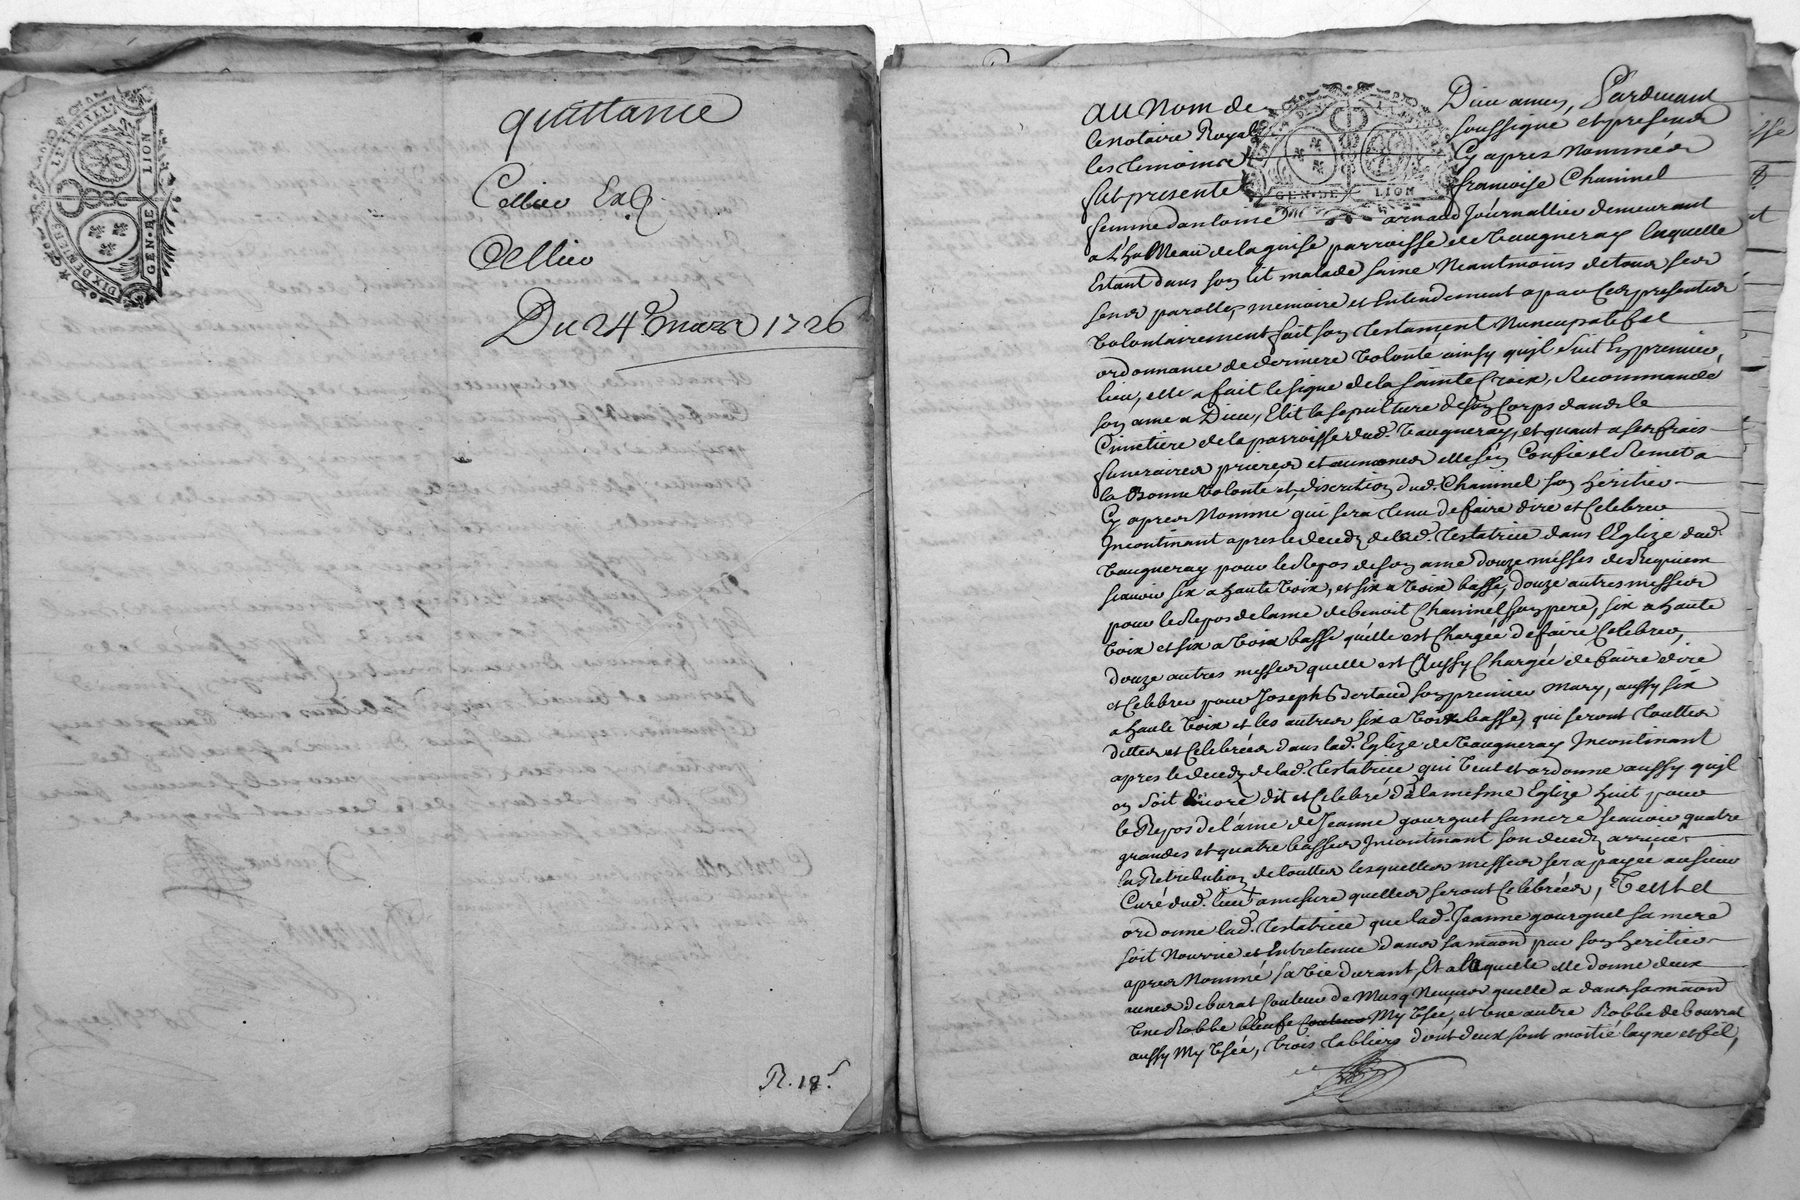 LE FEUILLE
GEN. DE LION
DIX DENIERS
quittance
Cellier
Cellier
Du 24e mars 1726
R. 18s
au nom de Dieu amen, Pardevant
le notaire Royal soussigné et presens
les temoins Cy apres Nommés
fut presente francoise Chaninel
femme dantoine arnaud Journallier demeurant
a L'haMeau de la guise parroisse de Vaugneray laquelle
Estant dans son lit malade saine Neantmoins de tous ses
sens parolle, memoire et Entendement a par Ces presentes
Volontairement fait son testament Nuncupatif et
ordonnance de derniere Volonté ainsy quil suit En premier
lieu, elle a fait le signe de la sainte Croix, Recommandé
son ame a Dieu, Elit la sepulture de son Corps dans le
Cimetiere de la parroisse dud. Vaugneray, et quant a ses frais
funeraires prieres et aumones elle sen Confie et Remet a
la Bonne Volonté et discretion dud. Chaninel son heritier
Cy apres Nommé qui sera tenu de faire dire et Celebrer
Incontinant apres le deceds de lad. testatrice dans l'Eglize dud.
Vaugneray pour le Repos de son ame douze messes de Requiem
scavoir six a haute Voix, et six a Voix basse, douze autres messes
pour le Repos de lame de benoit Chaninel son pere, six a haute
Voix et six a Voix basse quelle est Chargée de faire Celebrer,
douze autres messes quelle est Aussy Chargée de faire dire
et Celebrer pour Joseph Bertaud son premier mary, aussy six
a haute Voix et les autres six a Voix basse, qui seront touttes
dittes et Celebrées dans lad. Eglize de Vaugneray Incontinant
apres le deceds de lad. testatrice qui Veut et ordonne aussy quil
en soit Encore dit et Celebré da la mesme Eglize huit pour
le Repos de l'ame de Jeanne gourguet sa mere scavoir quatre
grandes et quatre basses Incontinant son deceds arrivé
la Retribution de touttes lesquelles messes sera payée au sieur
Curé dud. lieu a mesure quelles seront Celebrées, Veut et
ordonne lad. testatrice que lad. Jeanne gourguet sa mere
soit Nourrie et Entretenue dans sa maon par son heritier
apres Nommé sa Vie durant, Et a laquelle elle donne deux
aunes de burat Couleur de Musq Neuves quelle a dans sa maon
Une Robbe bleufe Couleur My Usée, et Une autre Robbe de bourrat
aussy My Usée, trois tabliers dont deux sont moitié layne et fil,